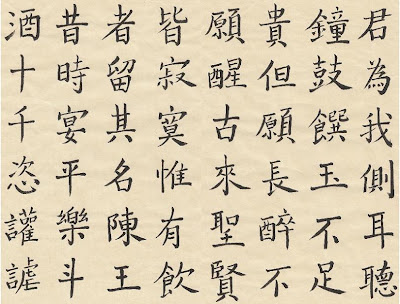 君為我側耳聽
鐘鼓饌玉不足
貴但願長醉不
願醒古來聖賢
皆寂寞惟有飲
者留其名陳王
昔時宴平樂斗
酒十千恣讙謔